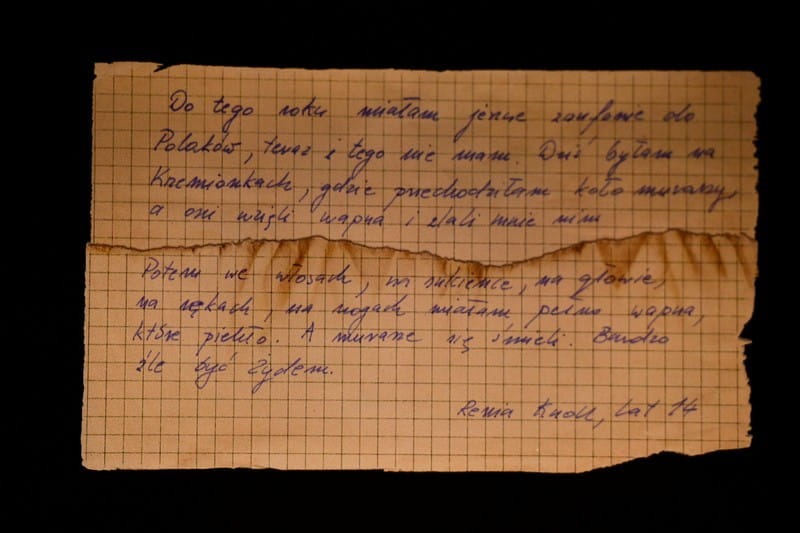 Do tego roku miałam jeszcze zaufanie do
Polaków, teraz i tego nie mam. Dziś byłam na
Krzemionkach, gdzie przechodziłam koło murarzy,
a oni wzięli wapna i zlali mnie nim
Potem we włosach, w sukience, na głowie,
na rękach, na nogach miałam pełno wapna,
które piekło. A murarze się śmieli. Bardzo
źle być Żydem.
Renia Knoll, lat 14